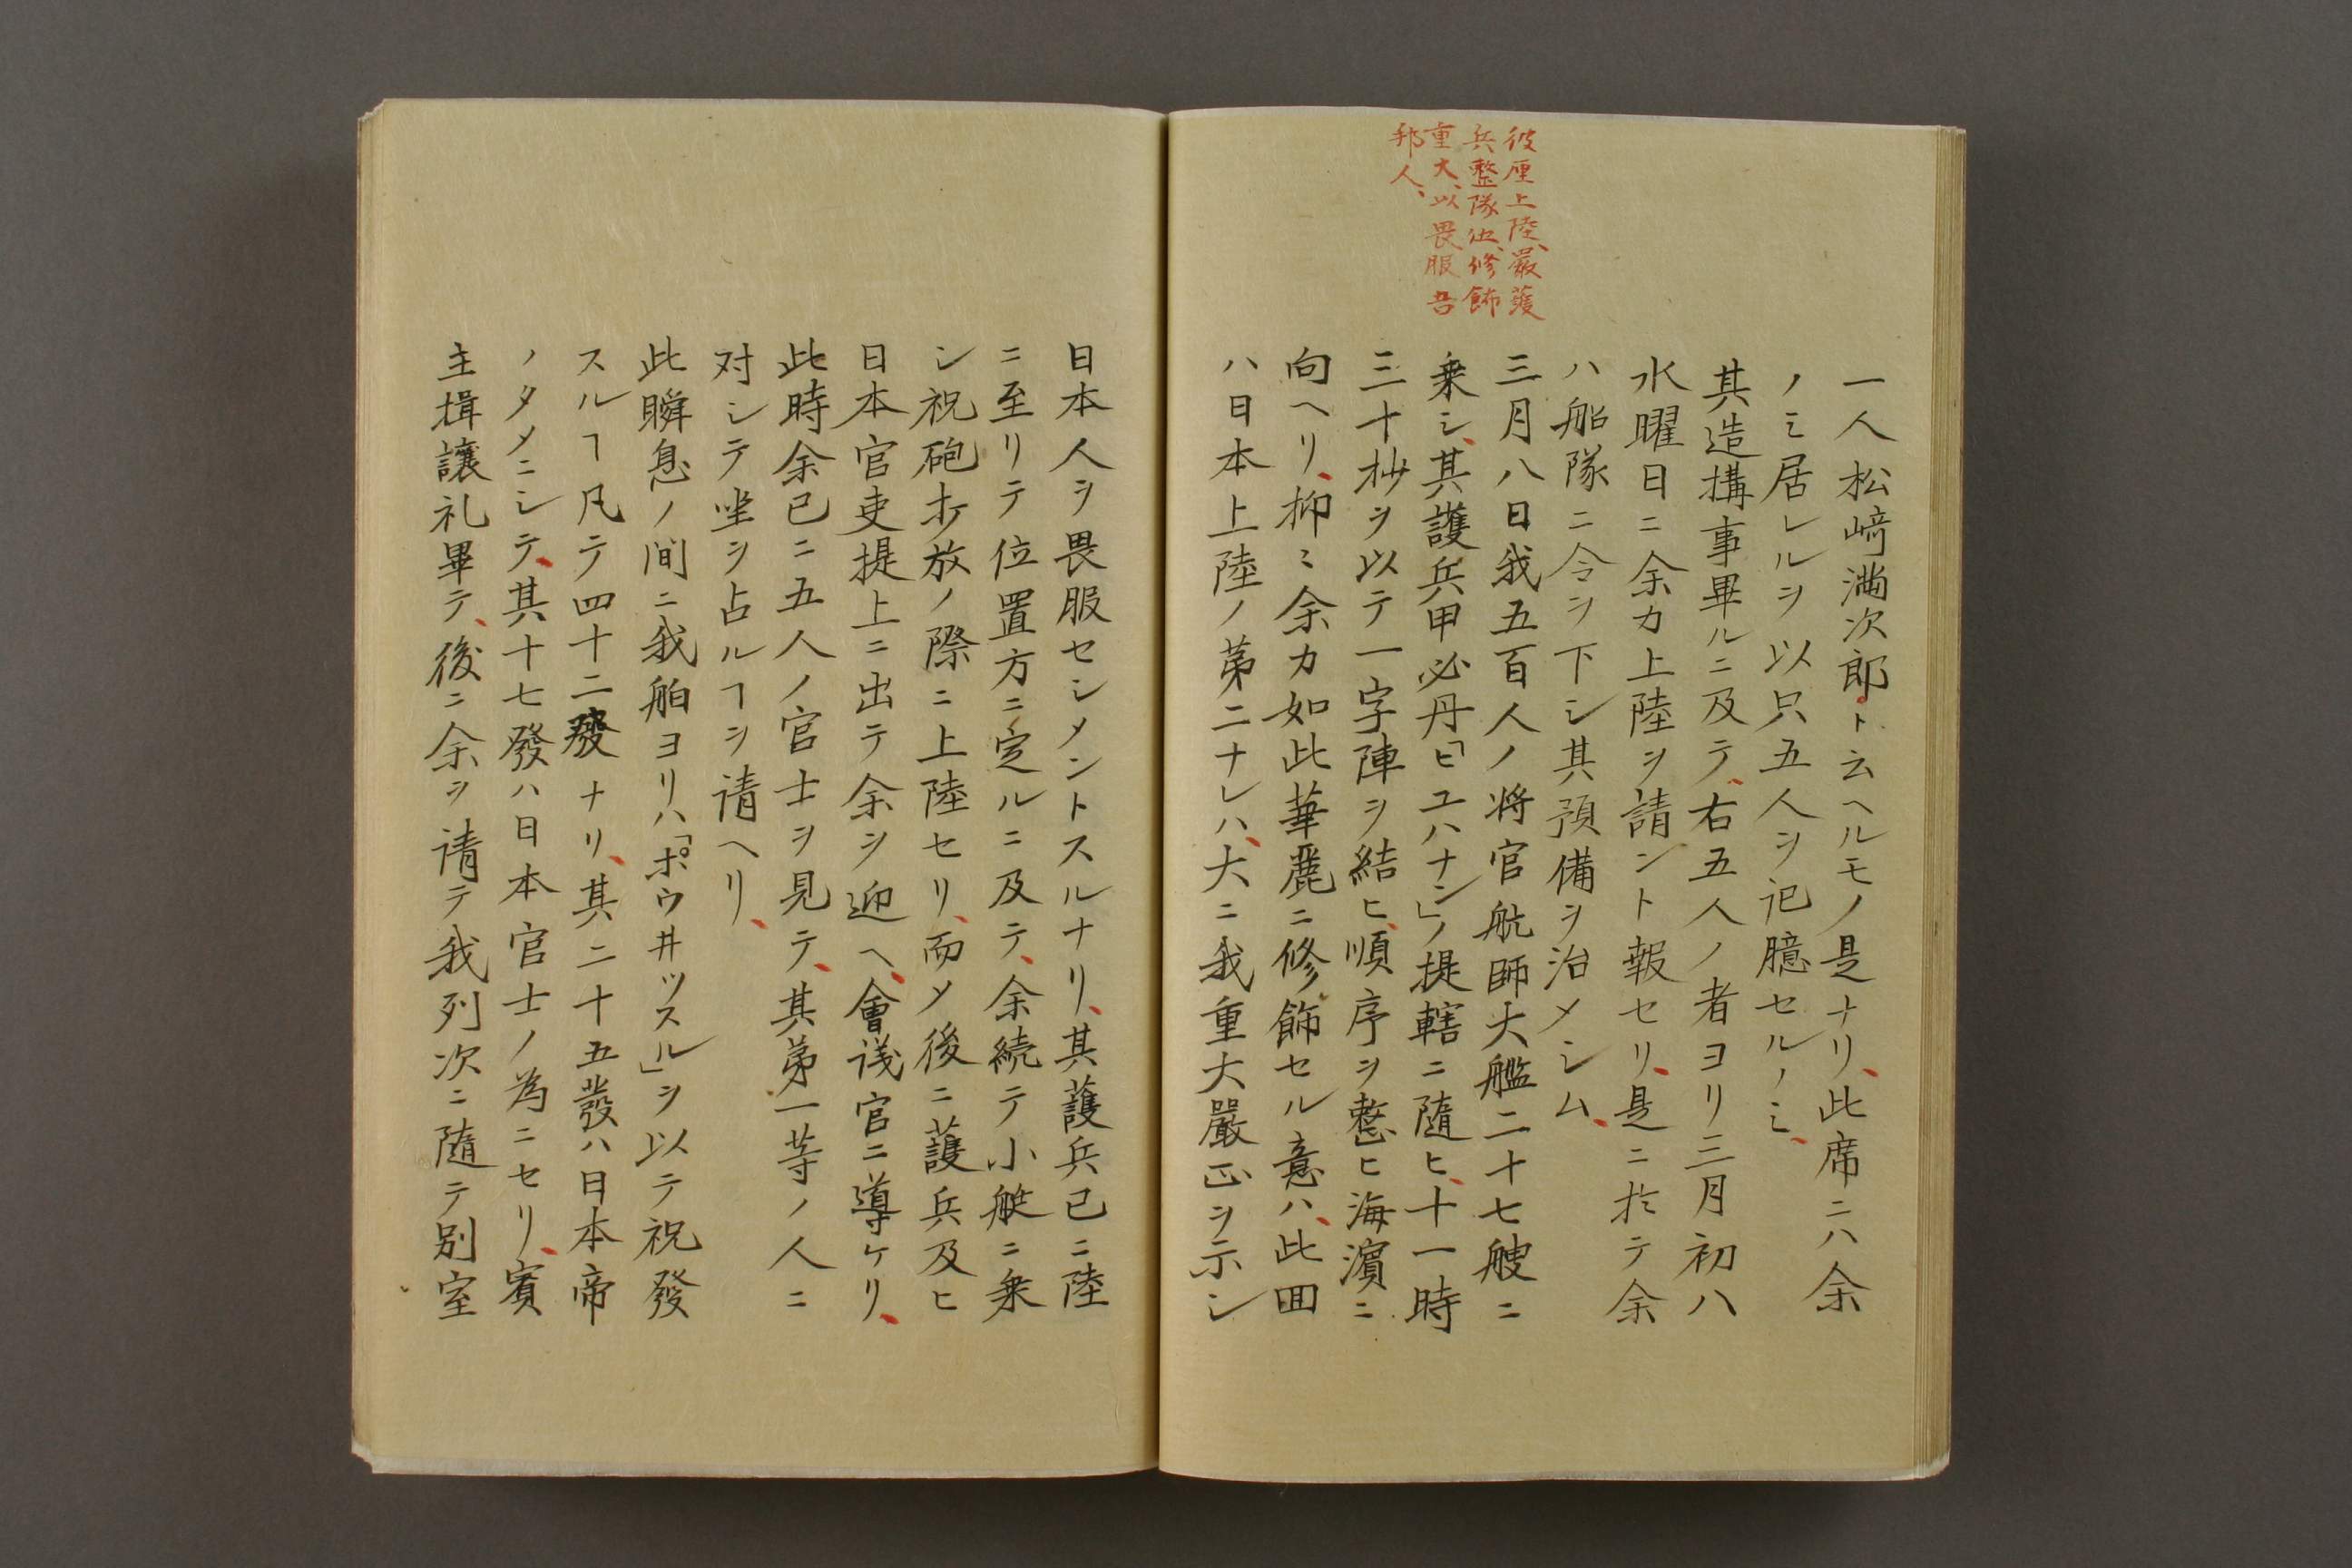 彼厘上陸、嚴護
兵整隊伍、修飾
重大、以畏服吾
邦人、
一人松﨑満次郎ト云ヘルモノ是ナリ、此席ニハ余
ノミ居レルヲ以只五人ヲ記臆セルノミ、
其造構事畢ルニ及テ、右五人ノ者ヨリ三月初八
水曜日ニ余カ上陸ヲ請ント報セリ、是ニ於テ余
ハ船隊ニ令ヲ下シ其預備ヲ治メシム、
三月八日我五百人ノ将官航師大艦二十七艘ニ
乗シ、其護兵甲必丹「ビユハナン」ノ提轄ニ隨ヒ、十一時
三十抄ヲ以テ一字陣ヲ結ヒ、順序ヲ整ヒ海濱ニ
向ヘリ、抑ミ余カ如此華麗ニ修飾セル意ハ、此囬
ハ日本上陸ノ第二ナレハ、大ニ我重大嚴正ヲ示シ
日本人ヲ畏服セシメントスルナリ、其護兵已ニ陸
ニ至リテ位置方ニ定ルニ及テ、余続テ小艇ニ乗
シ祝砲打放ノ際ニ上陸セリ、而メ後ニ護兵及ヒ
日本官吏提上ニ出テ余ヲ迎ヘ、會議官ニ導ケリ、
此時余已ニ五人ノ官士ヲ見テ、其第一等ノ人ニ
対シテ坐ヲ占ルヿヲ请ヘリ、
此瞬息ノ间ニ我舶ヨリハ「ポウヰツスル」ヲ以テ祝發
スルヿ凡テ四十二發ナリ、其二十五發ハ日本帝
ノタメニシテ、其十七發ハ日本官士ノ為ニセリ、賓
主揖讓礼畢テ、後ニ余ヲ请テ我列次ニ隨テ別室